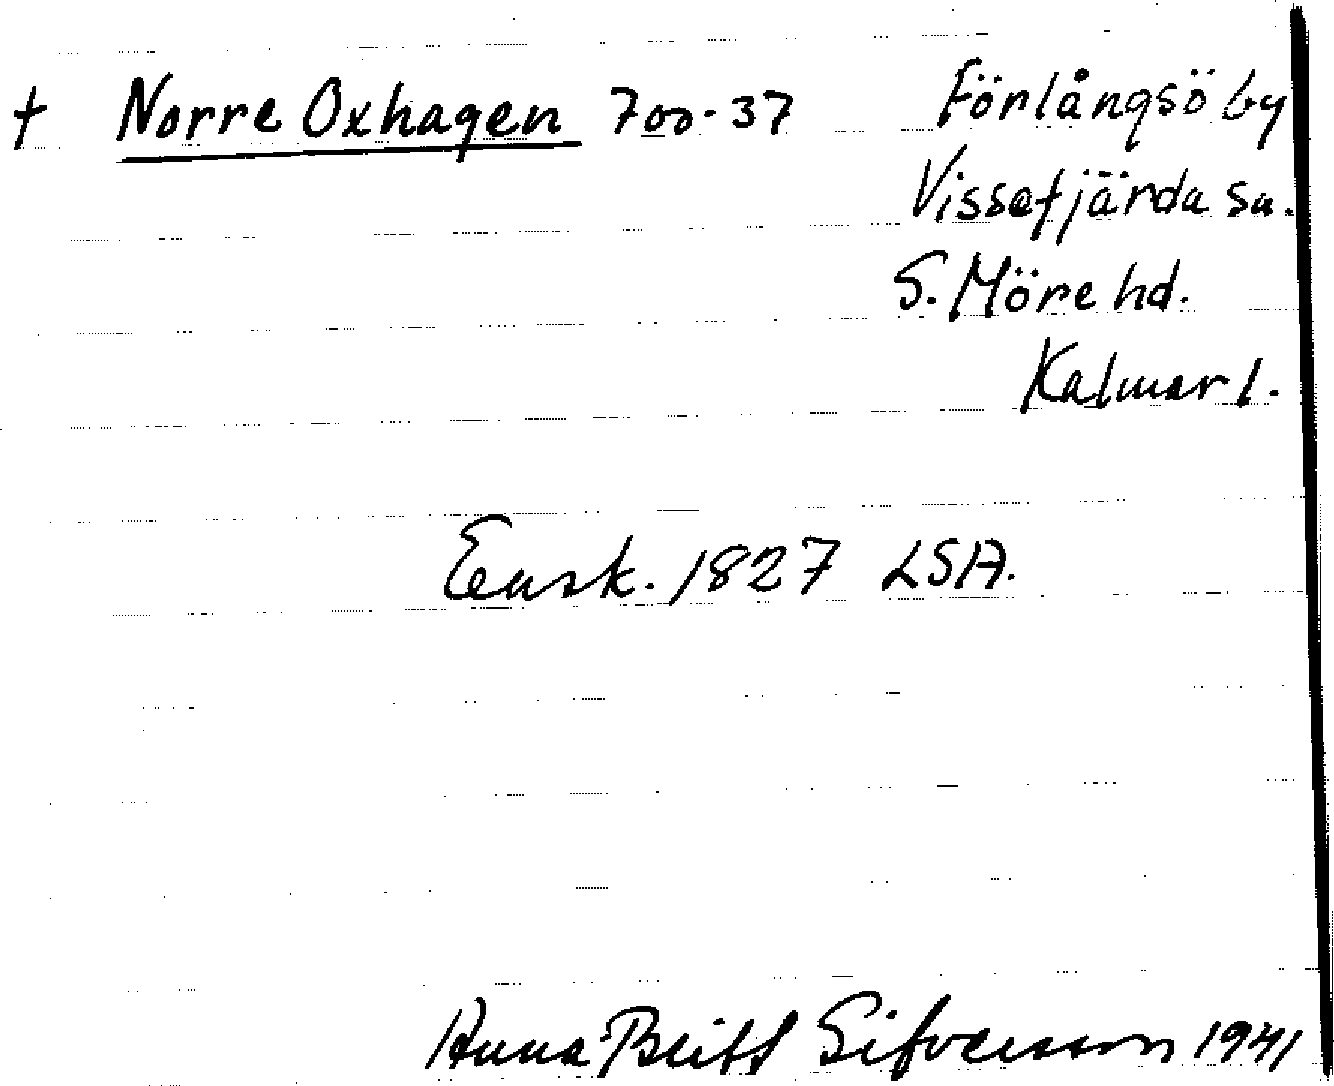 † Norre Oxhagen 700-37 Förlångsö by
Vissefjärda sn.
S. Möre hd.
Kalmar l.
Ensk. 1827 LSA.
Anna Britt Sifversson 1941